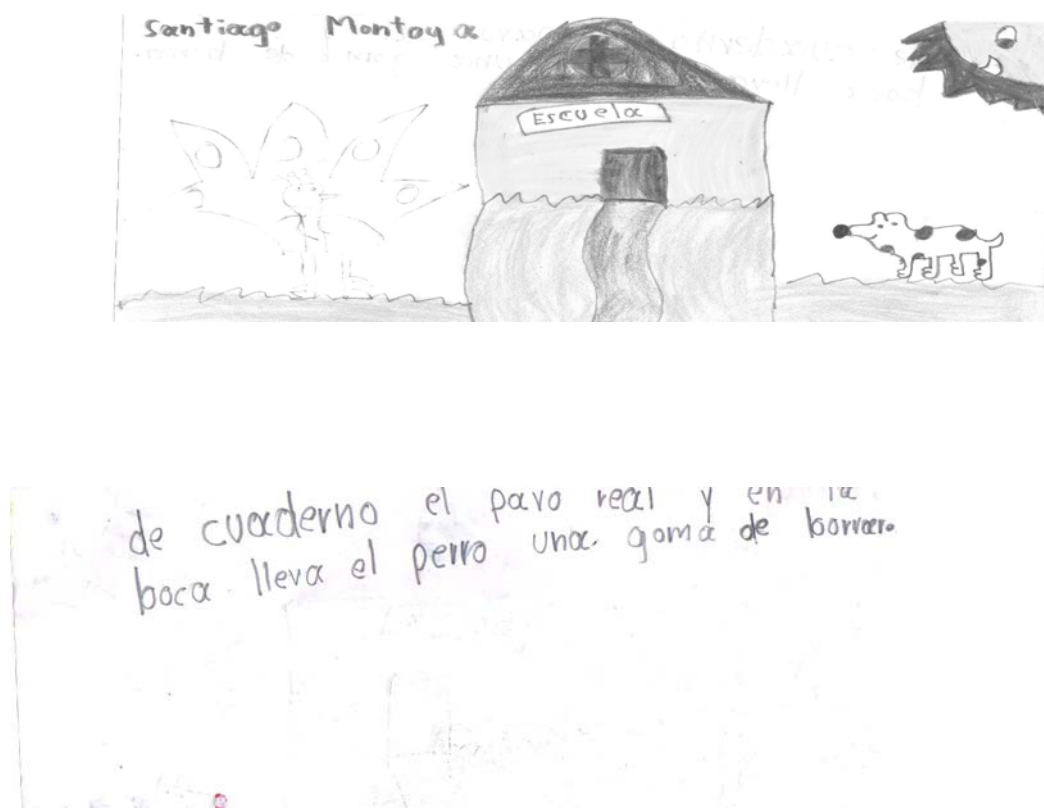 Santiago Montoya
Escuela
de cuaderno el pavo real y en la
boca lleva el perro una goma de borrar.